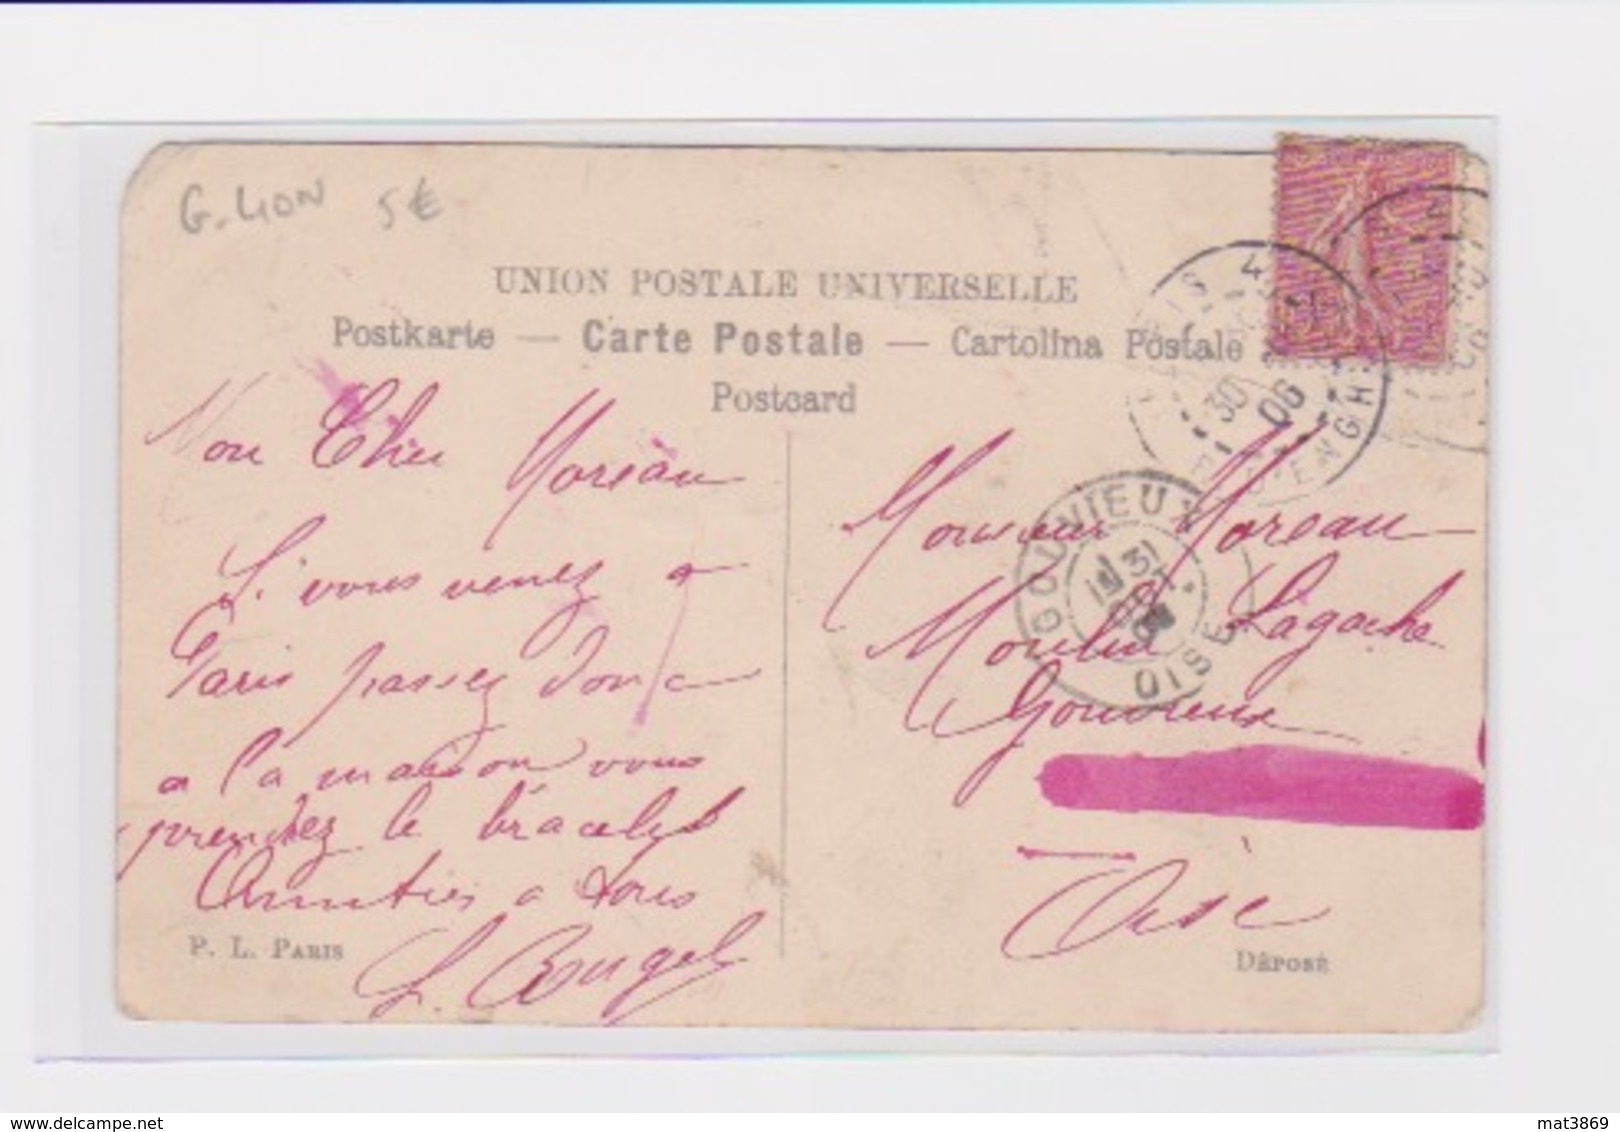 G. LION 5€
UNION POSTALE UNIVERSELLE
Postkarte — Carte Postale — Cartolina Postale
Postcard
Mon Cher Moreau
Si vous venez a
Paris passez donc
a la maison vous
prendrez le bracelet
Amitiés a tous
P. L. PARIS
PARIS 4
30
06
GOUVIEUX
31
OISE
Monsieur Moreau
Moulin Lagache
Gouvieux
Oise
DÉPOSÉ
delcampe.net
mat3869